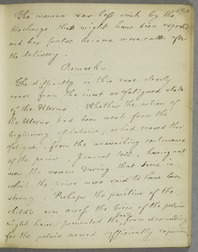 The woman was less sunk by the
discharge that might have been expected
and her pulse became more calm after
the delivery.
Remarks.
The difficulty in this case clearly
arose from the inert or fatigued state
of the Uterus. Whether the action of
the Uterus had been weak from the
beginning of labour, or had ceased thro
fatigue, from the unavailing continuance
of the pains, I cannot tell, having not
seen the woman during that time in
which the pains were said to have been
strong. Perhaps the position of the
child's arm round the brim of the pelvis
might have prevented the head from descending
in the pelvis sufficiently